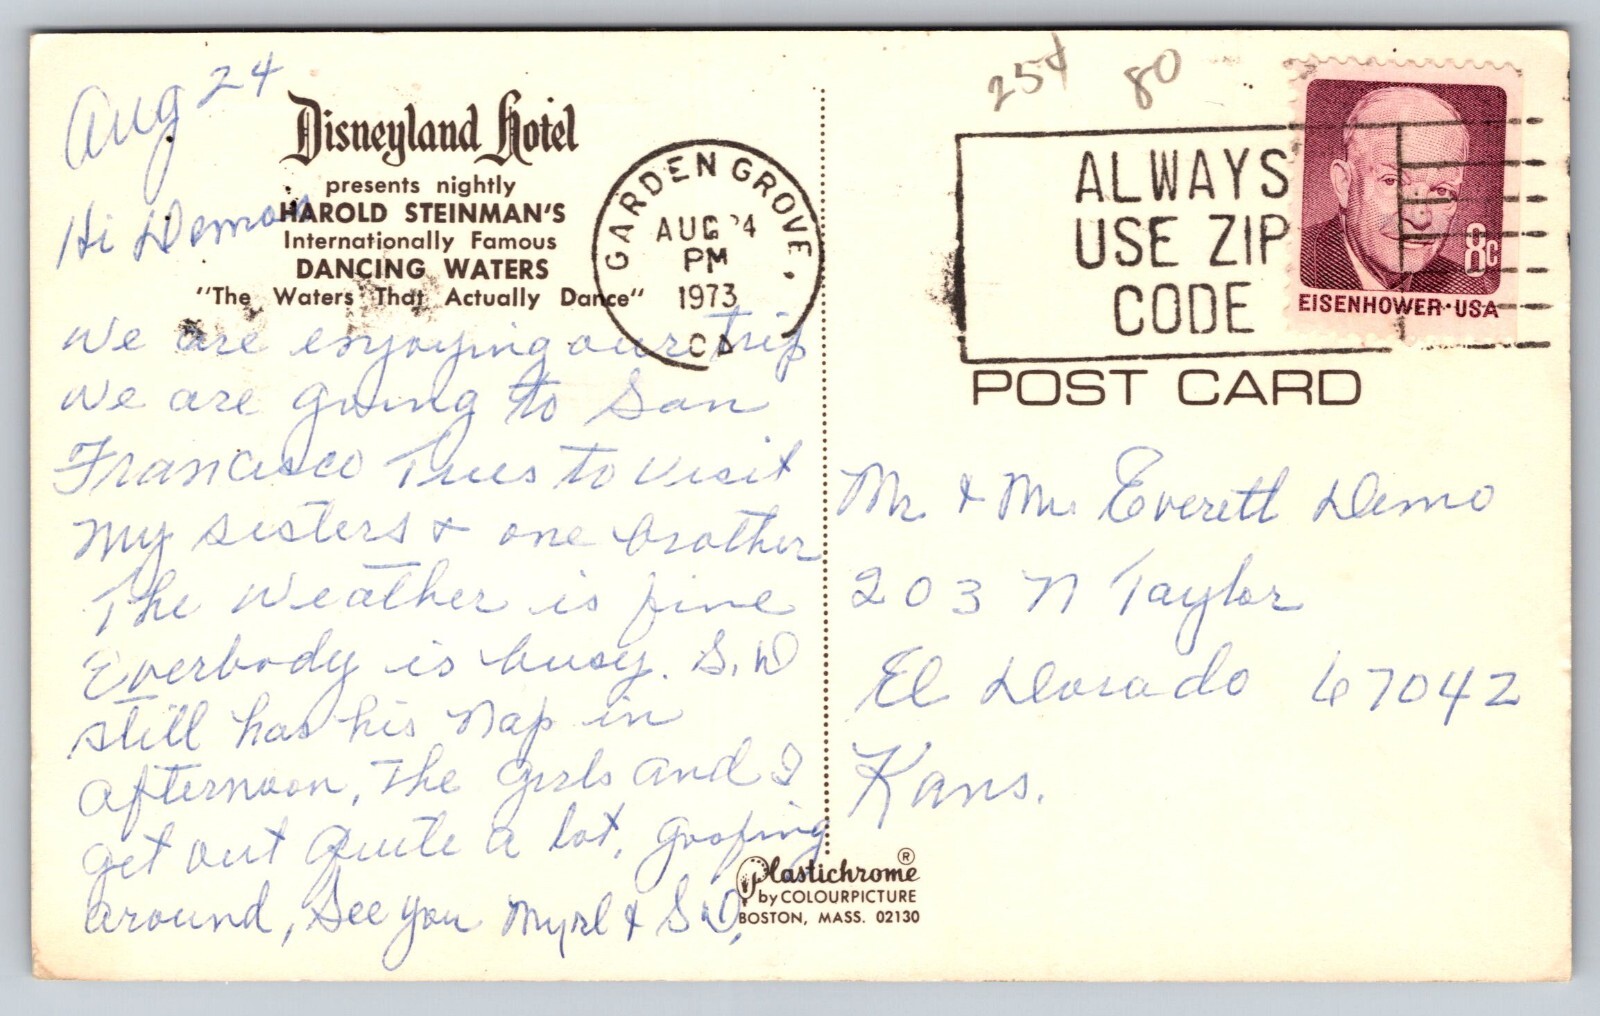 Aug 24
Disneyland Hotel
presents nightly
HAROLD STEINMAN'S
Internationally Famous
DANCING WATERS
"The Waters That Actually Dance"
Hi Demos
We are enjoying our trip
We are going to San
Francisco Tues to visit
My sisters & one brother
The Weather is fine
Everbody is busy. S.D
still has his Nap in
afternoon, The Girls and I
get out Quite a lot, goofing
around, See you Myrl & S.D.
GARDEN GROVE,
AUG 24
PM
1973
CA
25¢ 80
ALWAYS
USE ZIP
CODE
8c
EISENHOWER·USA
POST CARD
Mr. & Mrs Everett Demo
203 N Taylor
El Dorado 67042
Kans.
Plastichrome ®
by COLOURPICTURE
BOSTON, MASS. 02130